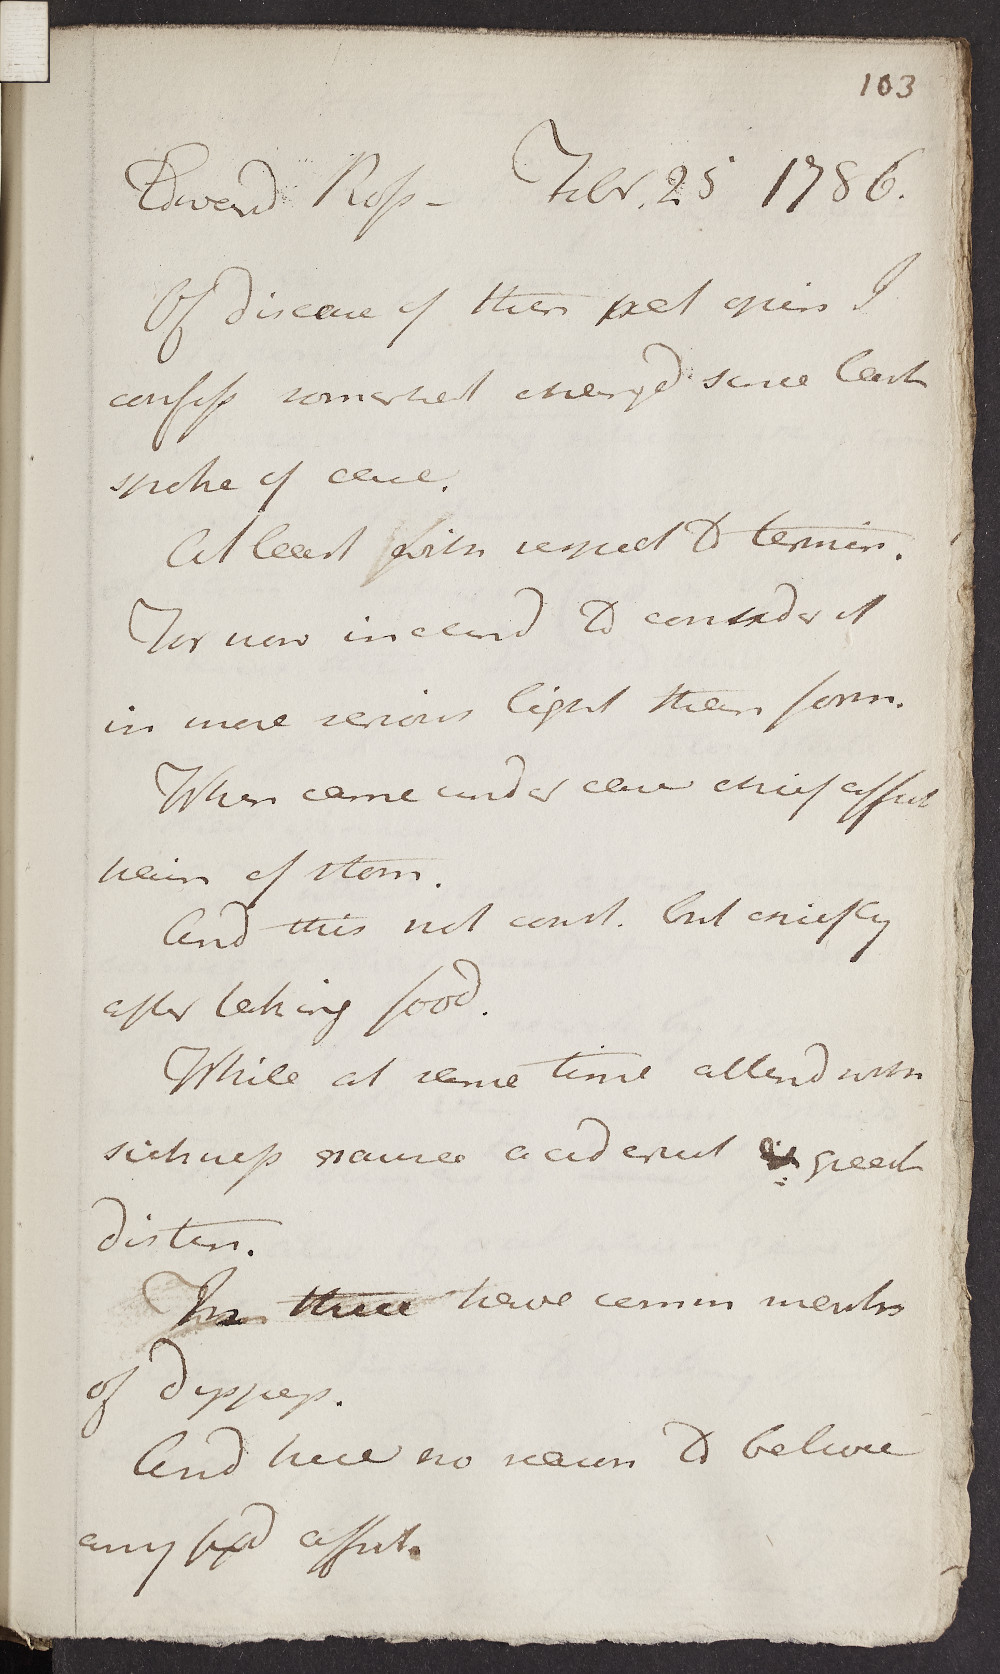 103
Edward Ross - Febr. 25 1786.
Of disease of this pat opin I
confess somewhat chang'd since last
spoke of case.
At least with respect to termin.
For now inclind to consider it
in more serious light than form.
When came under care chief affect
pain of stom.
And this not const. but chiefly
after taking food.
While at same time attend with
sickness nausea acid eruct & great
disten.
In these have comm marks
of dyspeps.
And here no reason to believe
any fixd affect.